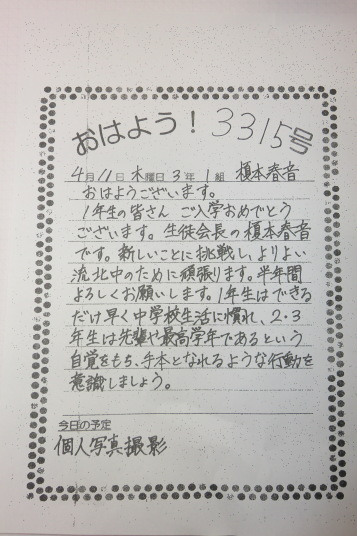 おはよう！3315号
4月11日木曜日3年1組 榎本春音
おはようございます。
1年生の皆さん ご入学おめでとう
ございます。生徒会長の榎本春音
です。新しいことに挑戦し、よりよい
流北中のために頑張ります。半年間
よろしくお願いします。1年生はできる
だけ早く中学校生活に慣れ、2・3
年生は先輩や最高学年であるという
自覚をもち、手本となれるような行動を
意識しましょう。
今日の予定
個人写真撮影